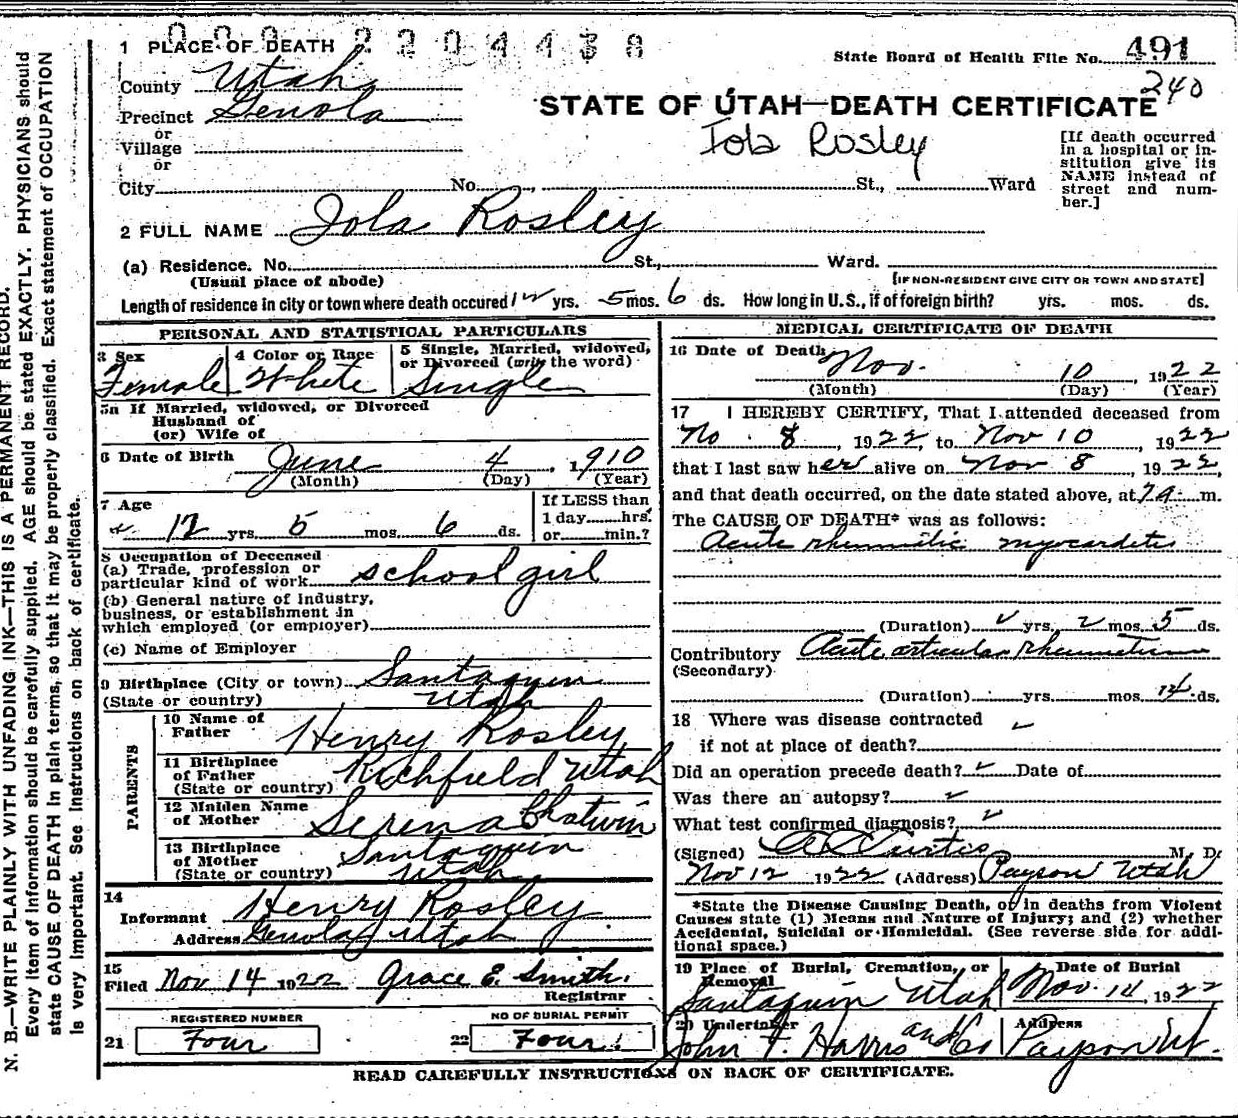 0 0 0 2 2 0 4 4 3 8
1 PLACE OF DEATH
State Board of Health File No. 491
240
County Utah
Precinct Genola
or
Village
or
City No. St., Ward
STATE OF UTAH—DEATH CERTIFICATE
Iola Rosley
[If death occurred in a hospital or in-
stitution give its
NAME instead of
street and num-
ber.]
2 FULL NAME Iola Rosley
(a) Residence. No. St., Ward.
(Usual place of abode) [IF NON-RESIDENT GIVE CITY OR TOWN AND STATE]
Length of residence in city or town where death occured 12 yrs. 5 mos. 6 ds. How long in U.S., if of foreign birth? yrs. mos. ds.
PERSONAL AND STATISTICAL PARTICULARS
3 Sex
Female
4 Color or Race
White
5 Single, Married, widowed,
or Divorced (write the word)
Single
5a If Married, widowed, or Divorced
Husband of
(or) Wife of
6 Date of Birth June 4, 1910
(Month) (Day) (Year)
7 Age
12 yrs. 5 mos. 6 ds.
If LESS than
1 day hrs.
or min.?
8 Occupation of Deceased
(a) Trade, profession or
particular kind of work school girl
(b) General nature of industry,
business, or establishment in
which employed (or employer)
(c) Name of Employer
9 Birthplace (City or town) Santaquin
(State or country) Utah
PARENTS
10 Name of
Father Henry Rosley
11 Birthplace
of Father Richfield Utah
(State or country)
12 Maiden Name
of Mother Serena Chatwin
13 Birthplace
of Mother Santaquin
(State or country) Utah
14
Informant Henry Rosley
Address Genola Utah
15
Filed Nov 14 1922 Grace E. Smith.
Registrar
REGISTERED NUMBER
21 Four
NO OF BURIAL PERMIT
22 Four.
MEDICAL CERTIFICATE OF DEATH
16 Date of Death Nov. 10, 1922
(Month) (Day) (Year)
17 I HEREBY CERTIFY, That I attended deceased from
No. 8, 1922 to Nov 10 1922
that I last saw her alive on Nov 8, 1922,
and that death occurred, on the date stated above, at 7 a. m.
The CAUSE OF DEATH* was as follows:
Acute rheumatic myocarditis
(Duration) yrs. 2 mos. 5 ds.
Contributory Acute articular rheumatism
(Secondary)
(Duration) yrs. mos. 14 ds.
18 Where was disease contracted
if not at place of death?
Did an operation precede death? Date of
Was there an autopsy?
What test confirmed diagnosis?
(Signed) Curtis M. D.
Nov 12 1922 (Address) Payson Utah
*State the Disease Causing Death, or in deaths from Violent
Causes state (1) Means and Nature of Injury; and (2) whether
Accidental, Suicidal or Homicidal. (See reverse side for addi-
tional space.)
19 Place of Burial, Cremation, or
Removal
Santaquin Utah
Date of Burial
Nov. 14, 1922
20 Undertaker
John T. Harris and Co
Address
Payson Ut.
READ CAREFULLY INSTRUCTIONS ON BACK OF CERTIFICATE.
N. B.—WRITE PLAINLY WITH UNFADING INK—THIS IS A PERMANENT RECORD.
Every item of information should be carefully supplied. AGE should be stated EXACTLY. PHYSICIANS should
state CAUSE OF DEATH in plain terms, so that it may be properly classified. Exact statement of OCCUPATION
is very important. See instructions on back of certificate.